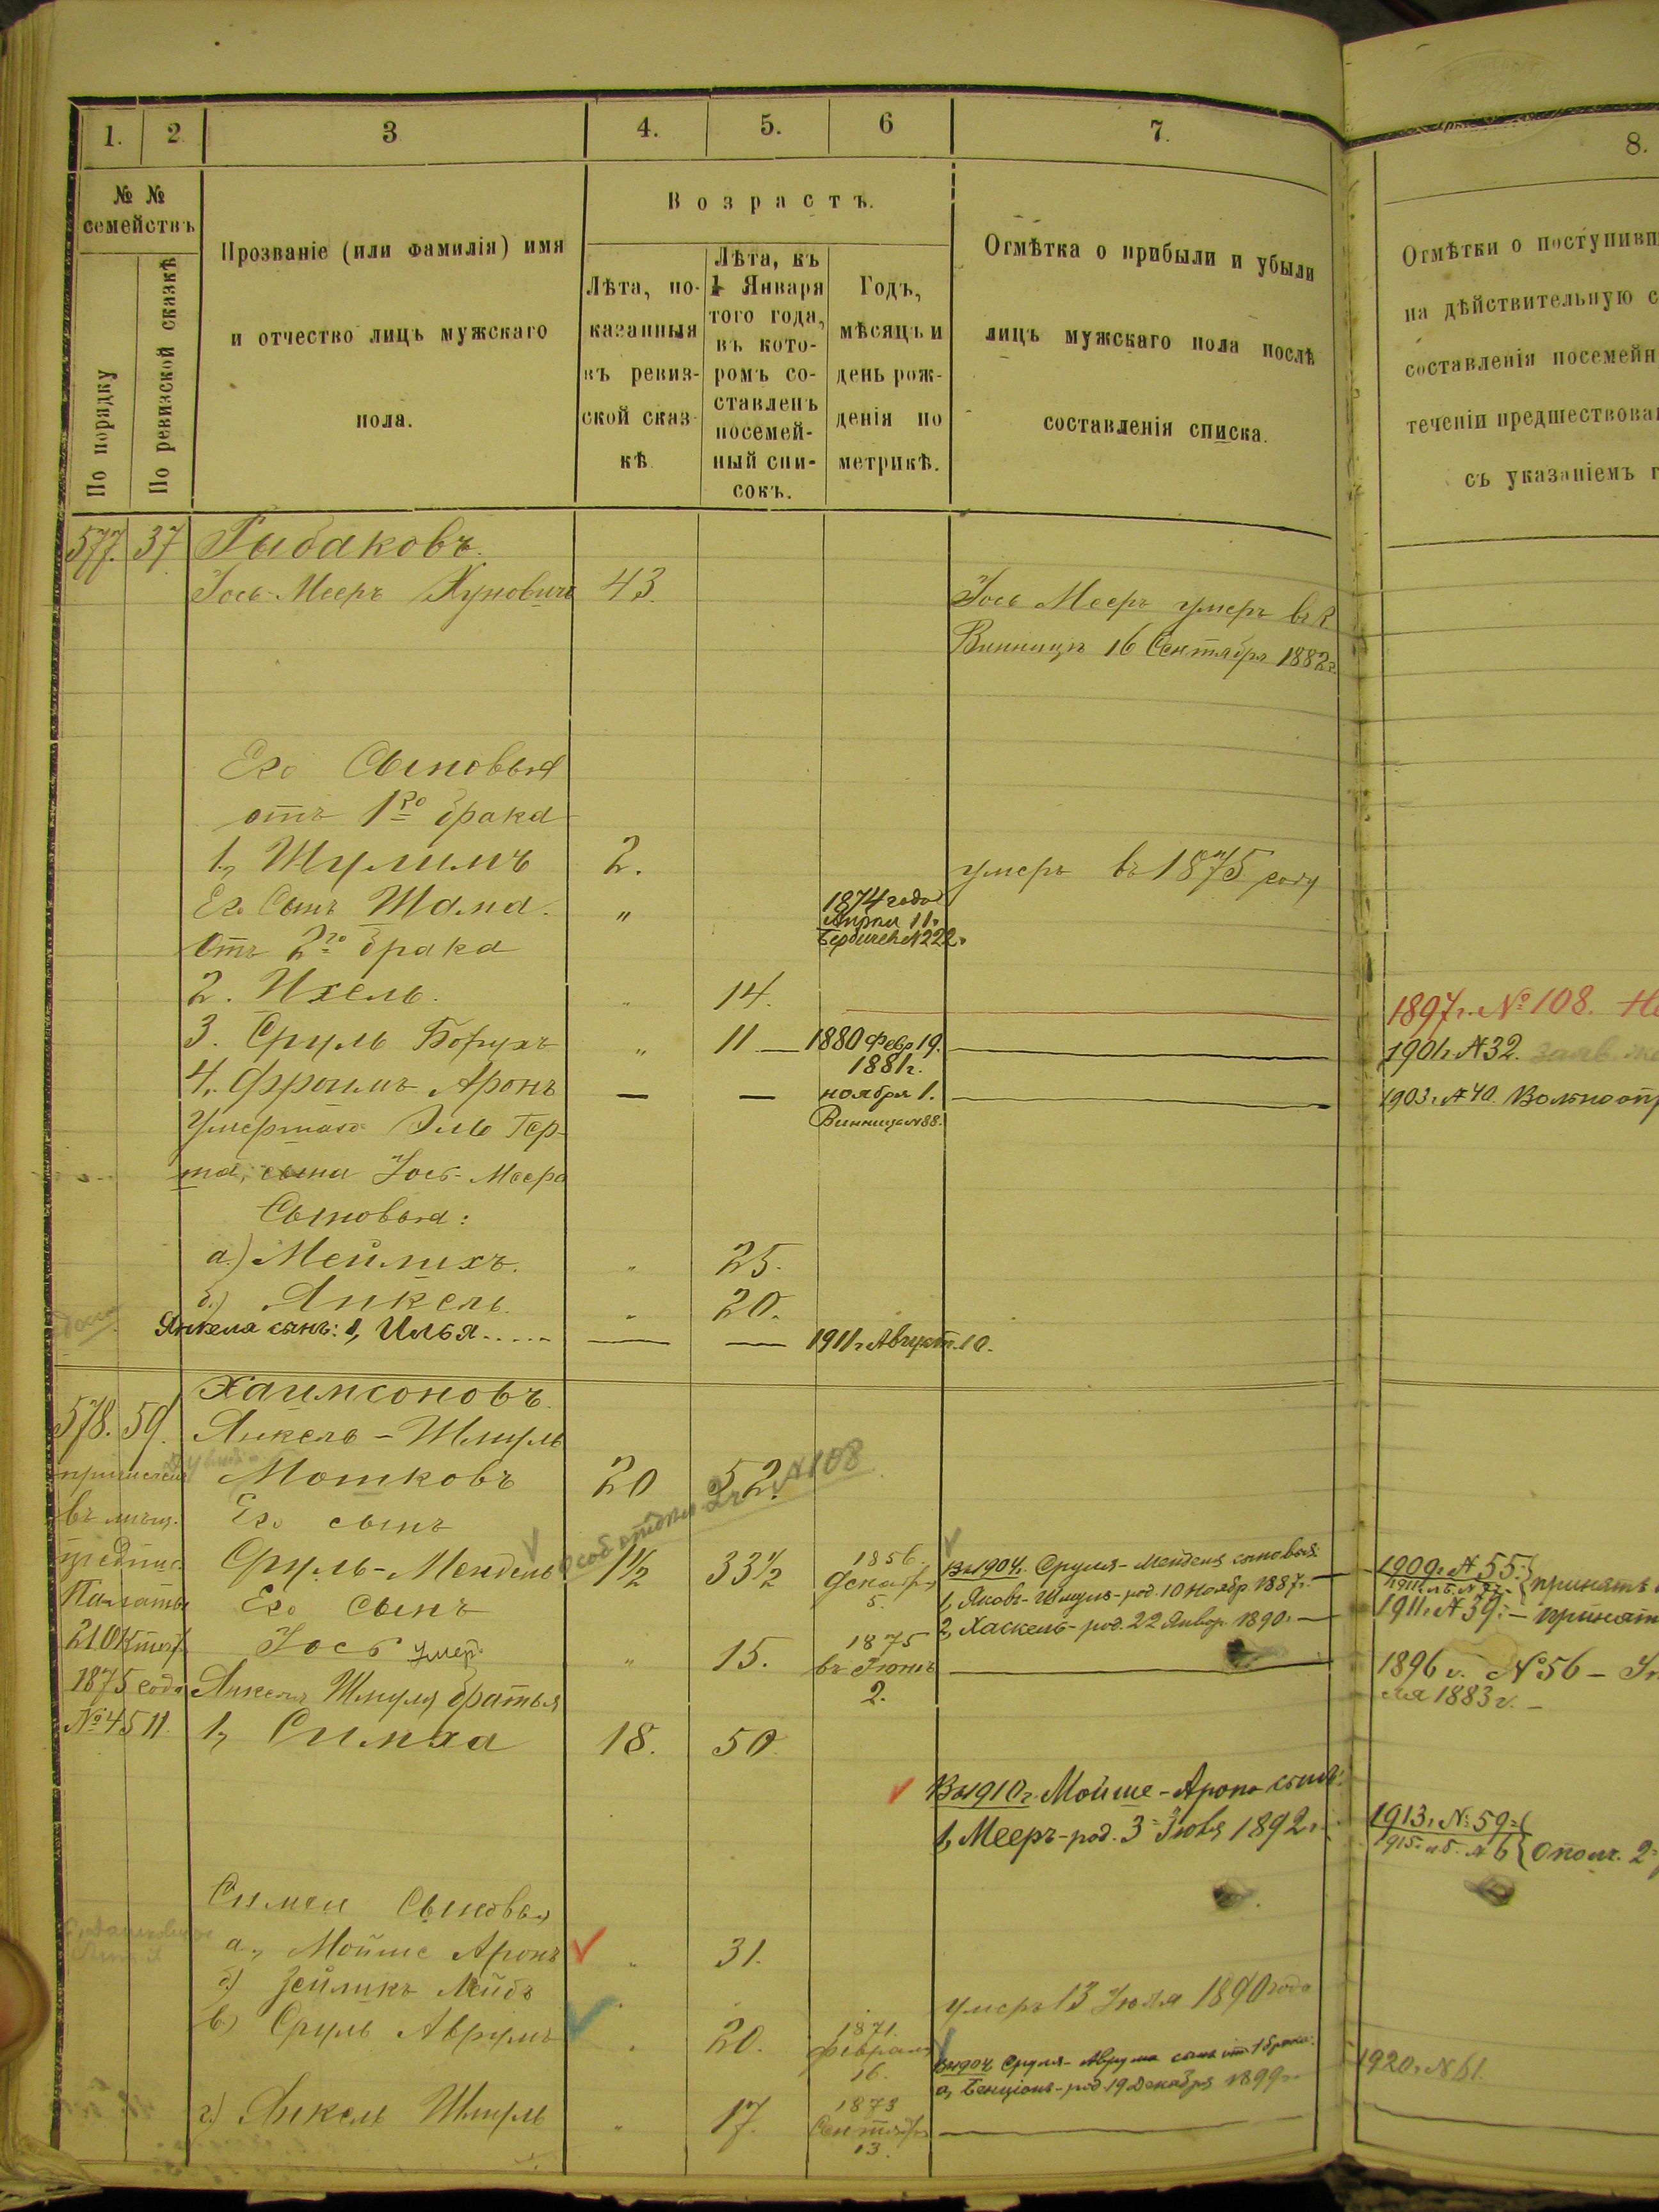 1.
2.
3
4.
5.
6
7.
8.
№ №
семействъ
По порядку
По ревизской сказкѣ
Прозваніе (или фамилія) имя
и отчество лицъ мужскаго
пола.
Возрастъ.
Лѣта, по-
казанныя
въ ревиз-
ской сказ-
кѣ.
Лѣта, къ
1 Января
того года,
въ кото-
ромъ со-
ставленъ
посемей-
ный спи-
сокъ.
Годъ,
мѣсяцъ и
день рож-
денія по
метрикѣ.
Отмѣтка о прибыли и убыли
лицъ мужскаго пола послѣ
составленія списка.
Отмѣтки о поступивш
на дѣйствительную с
составленія посемейн
теченіи предшествова
съ указаніемъ г
577. 37 Рыбаковъ.
Іось-Мееръ Хуновичъ 43.
Іось Мееръ умеръ въ г
Винницѣ 16 Сентября 1882 г.
Его Сыновья
отъ 1го брака
1, Шулимъ 2. умеръ въ 1875 году
Его Сынъ Шама. " 1874 года
Апрѣля 11.
Бердичев №222.
Отъ 2го брака
2. Ихель. " 14. 1897 г. № 108.
3. Сруль Борухъ " 11 — 1880 Февр 19. 1901 г. № 32.
4. Фроимъ Аронъ — — 1881 г.
ноября 1. 1903 г. № 40. Вольноопр
Винница №88.
Умершаго Эль Гер-
ша, сына Іось-Меера
Сыновья:
а.) Мейлихъ. " 25.
б.) Янкель. " 20.
Янкеля сынъ: 1, Илья..... — — 1911 г. Август. 10.
578. 59. Хаимсоновъ.
Янкель-Шмуль
Мошковъ 20 52.
№108
причислен
въ мѣщ.
предпис.
Палаты
21 Октяб.
1875 года
№4511.
Его сынъ
Сруль-Мендель 1½ 33½ 1856.
Декабря
5.
Въ 1904 г. Сруля-Менделя сыновья:
1, Яковъ-Шмуль-род. 10 ноябр 1887 г. —
2, Хаскель-род. 22 Январ. 1890 г. —
1909 г. № 55. принятъ
1911 г. № 39. — принят
Его Сынъ
Іось умер. " 15. 1875
въ Іюнѣ
2.
1896 г. № 56 –
ля 1883 г. –
Янкеля Шмуля братья
1, Симха 18. 50.
Въ 1910 г. Мойше-Арона сынъ:
1, Мееръ-род. 3 Іюля 1892 г.
1913 г. № 59.
1915 г. № 6 Ополч. 2
Симхи Сыновья
а., Мойше Аронъ " 31.
б.) Зейликъ Лейбъ умеръ 13 Іюля 1890 года
в) Сруль Аврумъ " 20. 1871.
февраля
16.
Въ 1904 Сруля-Аврума сынъ от 1 брака:
а, Бенціонъ-род. 19 Декабря 1899 г.
1920 г. № 61.
г.) Янкель Шмуль " 17. 1873
Сентября
13.